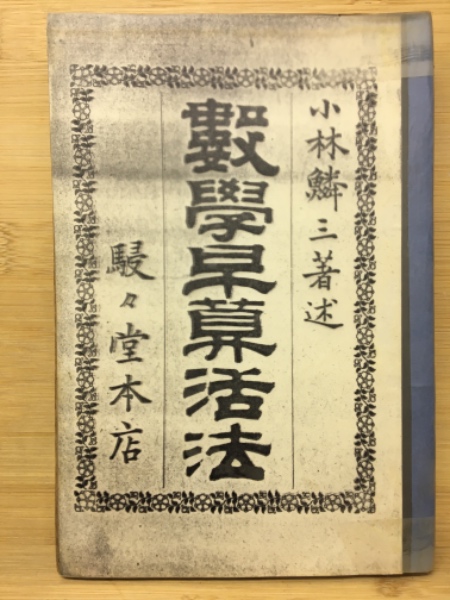 小林鱗三著述
數學早算活法
駸々堂本店